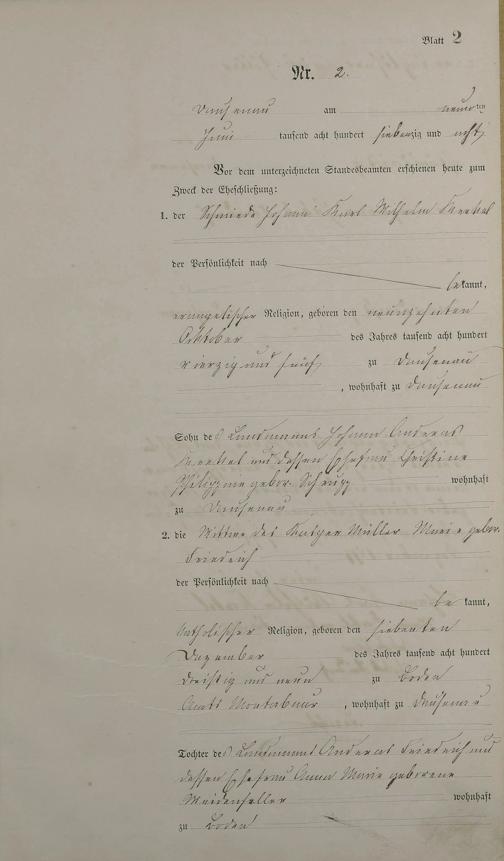 Blatt 2
Nr. 2.
Dausenau am neunten
Juni tausend acht hundert siebenzig und acht
Vor dem unterzeichneten Standesbeamten erschienen heute zum
Zweck der Eheschließung:
1. der Schmiede Johann Karl Wilhelm
der Persönlichkeit nach
bekannt,
evangelischer Religion, geboren den neunzehnten
Oktober des Jahres tausend acht hundert
vierzig und fünf zu Dausenau
, wohnhaft zu Dausenau
Sohn des Landmanns Johann Andreas
und dessen Ehefrau Christine
Philippine gebor. Schrupp wohnhaft
zu Dausenau
2. die Wittwe des Kaspar Müller Marie gebor.
Friedrich
der Persönlichkeit nach
be kannt,
katholischer Religion, geboren den siebenten
Dezember des Jahres tausend acht hundert
dreißig und neun zu Boden
Amts Montabaur , wohnhaft zu Dausenau
Tochter des Landmanns Andreas Friedrich und
dessen Ehefrau Anna Marie geborene
wohnhaft
zu Boden